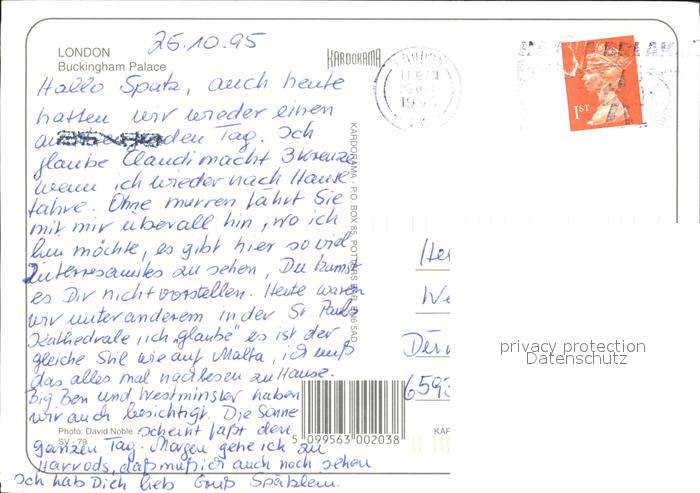 LONDON
Buckingham Palace
25.10.95
KARDORAMA
LONDON
1995
1ST
Hallo Spatz, auch heute
hatten wir wieder einen
den Tag. Ich
glaube Claudi macht 3 Kreuze
wenn ich wieder nach Hause
fahre. Ohne murren fährt Sie
mit mir überall hin, wo ich
hin möchte, es gibt hier soviel
Interresantes zu sehen, Du kannst
es Dir nicht vorstellen. Heute waren
wir unter anderem in der St. Pauls
Kathedrale, ich "glaube" es ist der
gleiche Stil wie auf Malta, ich muß
das alles mal nachlesen zu Hause.
Big Ben und Westminster haben
wir auch besichtigt. Die Sonne
scheint faßt den
ganzen Tag. Morgen gehe ich zu
Harrods, daß muß ich auch noch sehen
Ich hab Dich lieb Gruß Spätzlein.
KARDORAMA - P.O. BOX 85, POTTERS BAR, EN6 5AD
Her
We
6593
privacy protection
Datenschutz
Photo: David Noble
SV - 79
5 099563 002038
KAR